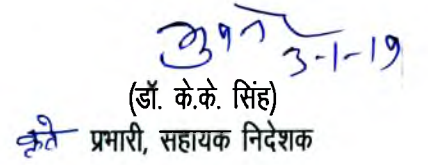 3-1-19
(डॉ. के.के. सिंह)
कृते प्रभारी, सहायक निदेशक